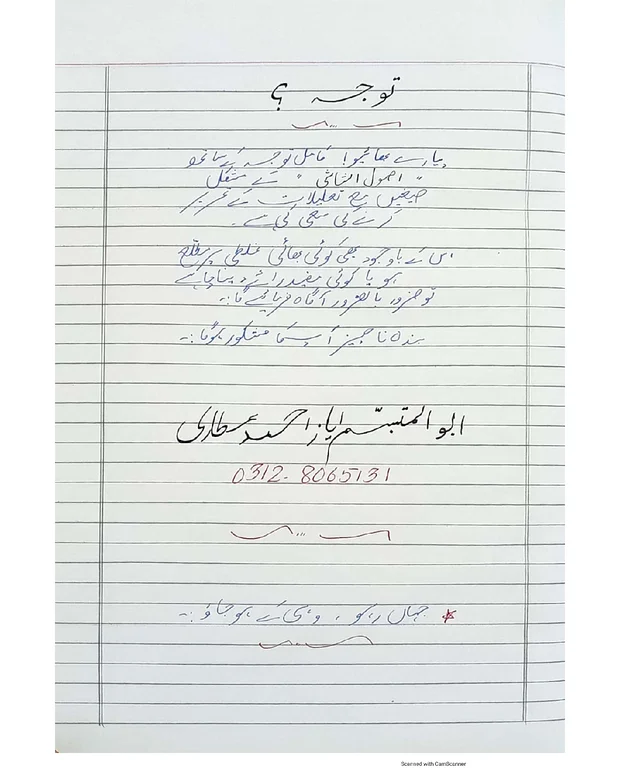 توجہ ؟
پیارے بھائیو! کامل توجہ کے ساتھ
" اصول الشاشی " کے مشکل
صیغیں مع تعلیلات کے تحریر
کرنے کی سعی کی ہے۔
اس کے باوجود بھی کوئی بھائی غلطی پر مطلع
ہو یا کوئی مفید رائے دینا چاہے
تو ضرور بالضرور آگاہ فرمائے گا:۔
بندہ ناچیز آپ کا مشکور ہوگا:۔
ابو المتبسّم ایاز احمد عطاری
0312-8065131
* جہاں رہو ، وہی کے ہو جاؤ:۔
Scanned with CamScanner